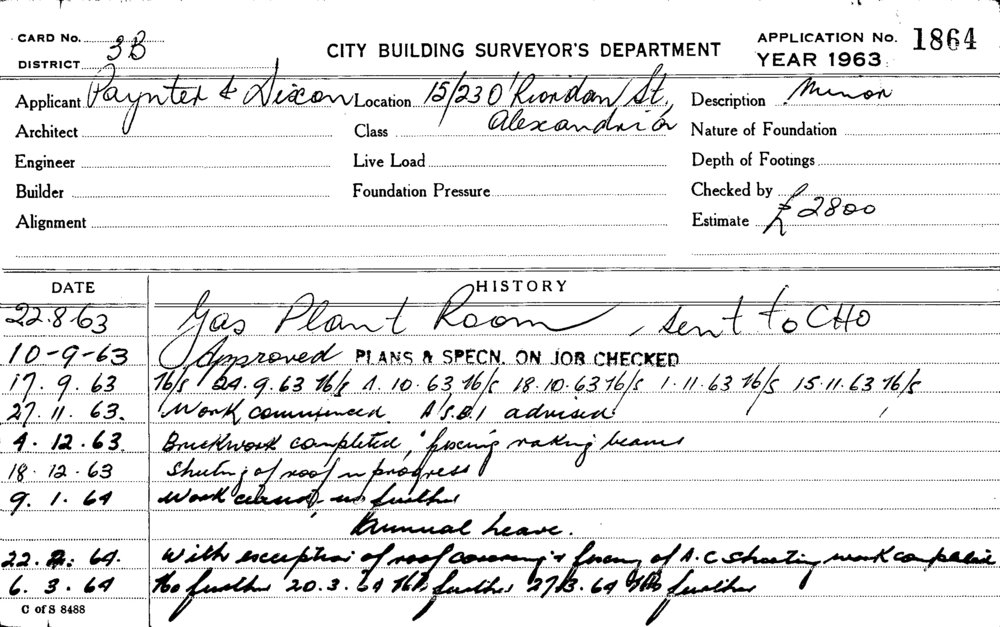 CARD No. 3B
DISTRICT
CITY BUILDING SURVEYOR'S DEPARTMENT
APPLICATION No. 1864
YEAR 1963
Applicant Paynter & Dixon Location 15/23 O'Riordan St, Alexandria Description Minor
Architect Class Nature of Foundation
Engineer Live Load Depth of Footings
Builder Foundation Pressure Checked by
Alignment Estimate £2800
DATE HISTORY
22.8.63 Gas Plant Room, sent to CHO
10-9-63 Approved PLANS & SPECN. ON JOB CHECKED
17.9.63 N/S 24.9.63 N/S 1.10.63 N/S 18.10.63 N/S 1.11.63 N/S 15.11.63 N/S
27.11.63. Work commenced A.S.D.I advised
4.12.63. Brickwork completed, fixing raking beams
18.12.63 Sheeting of roof in progress
9.1.64 Work ceased no further
Annual Leave.
22.2.64. With exception of roof covering & fixing of A.C. sheeting work complete
6.3.64 No further 20.3.64 No further 27.3.64 No further
C of S 8488